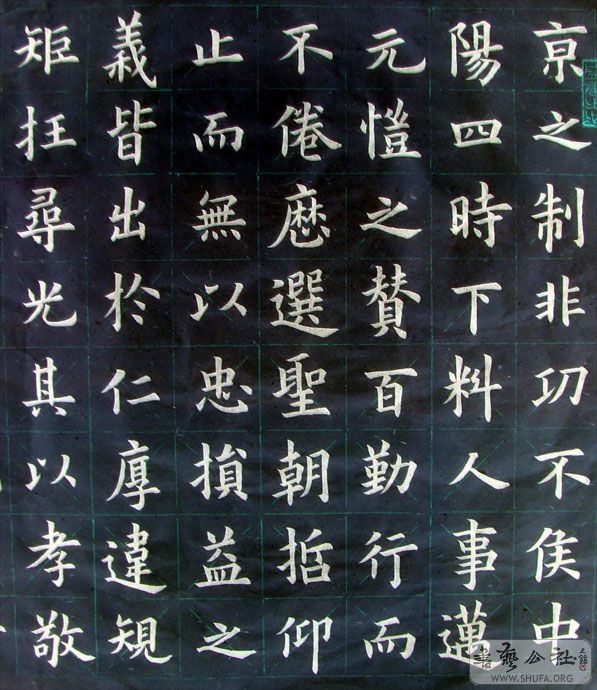 京之制非功不侯中
陽四時下料人事邁
元愷之贊百勤行而
不倦歷選聖朝哲仰
止而無以忠損益之
義皆出於仁厚違規
矩抂尋光其以孝敬
WWW.SHUFA.ORG